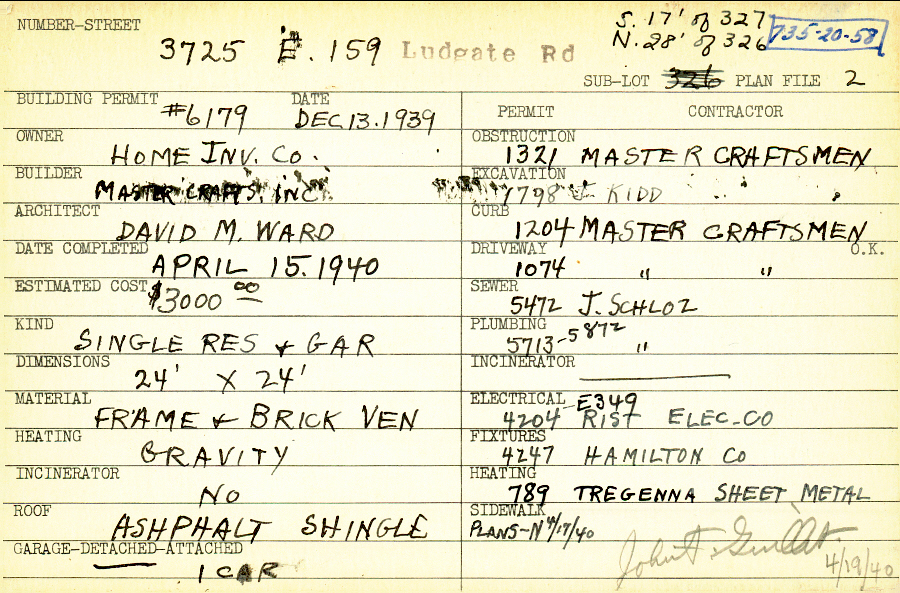 NUMBER-STREET
3725 E. 159 Ludgate Rd
S. 17' of 327
N. 28' of 326
735-20-58
SUB-LOT 326 PLAN FILE 2
BUILDING PERMIT #6179 DATE DEC. 13. 1939
OWNER HOME INV. CO.
BUILDER MASTER CRAFTS. INC.
ARCHITECT DAVID M. WARD
DATE COMPLETED APRIL 15. 1940
ESTIMATED COST $3000 00
KIND SINGLE RES & GAR
DIMENSIONS 24' X 24'
MATERIAL FRAME & BRICK VEN
HEATING GRAVITY
INCINERATOR NO
ROOF ASHPHALT SHINGLE
GARAGE-DETACHED-ATTACHED
1 CAR
PERMIT CONTRACTOR
OBSTRUCTION 1321 MASTER CRAFTSMEN
EXCAVATION 1798 KIDD
CURB 1204 MASTER CRAFTSMEN
DRIVEWAY 1074 " " O.K.
SEWER 5472 J. SCHLOZ
PLUMBING 5713-5872 "
INCINERATOR
ELECTRICAL 4204-E349 RIST ELEC. CO
FIXTURES 4247 HAMILTON CO
HEATING 789 TREGENNA SHEET METAL
SIDEWALK
PLANS-N 4/17/40
4/19/40